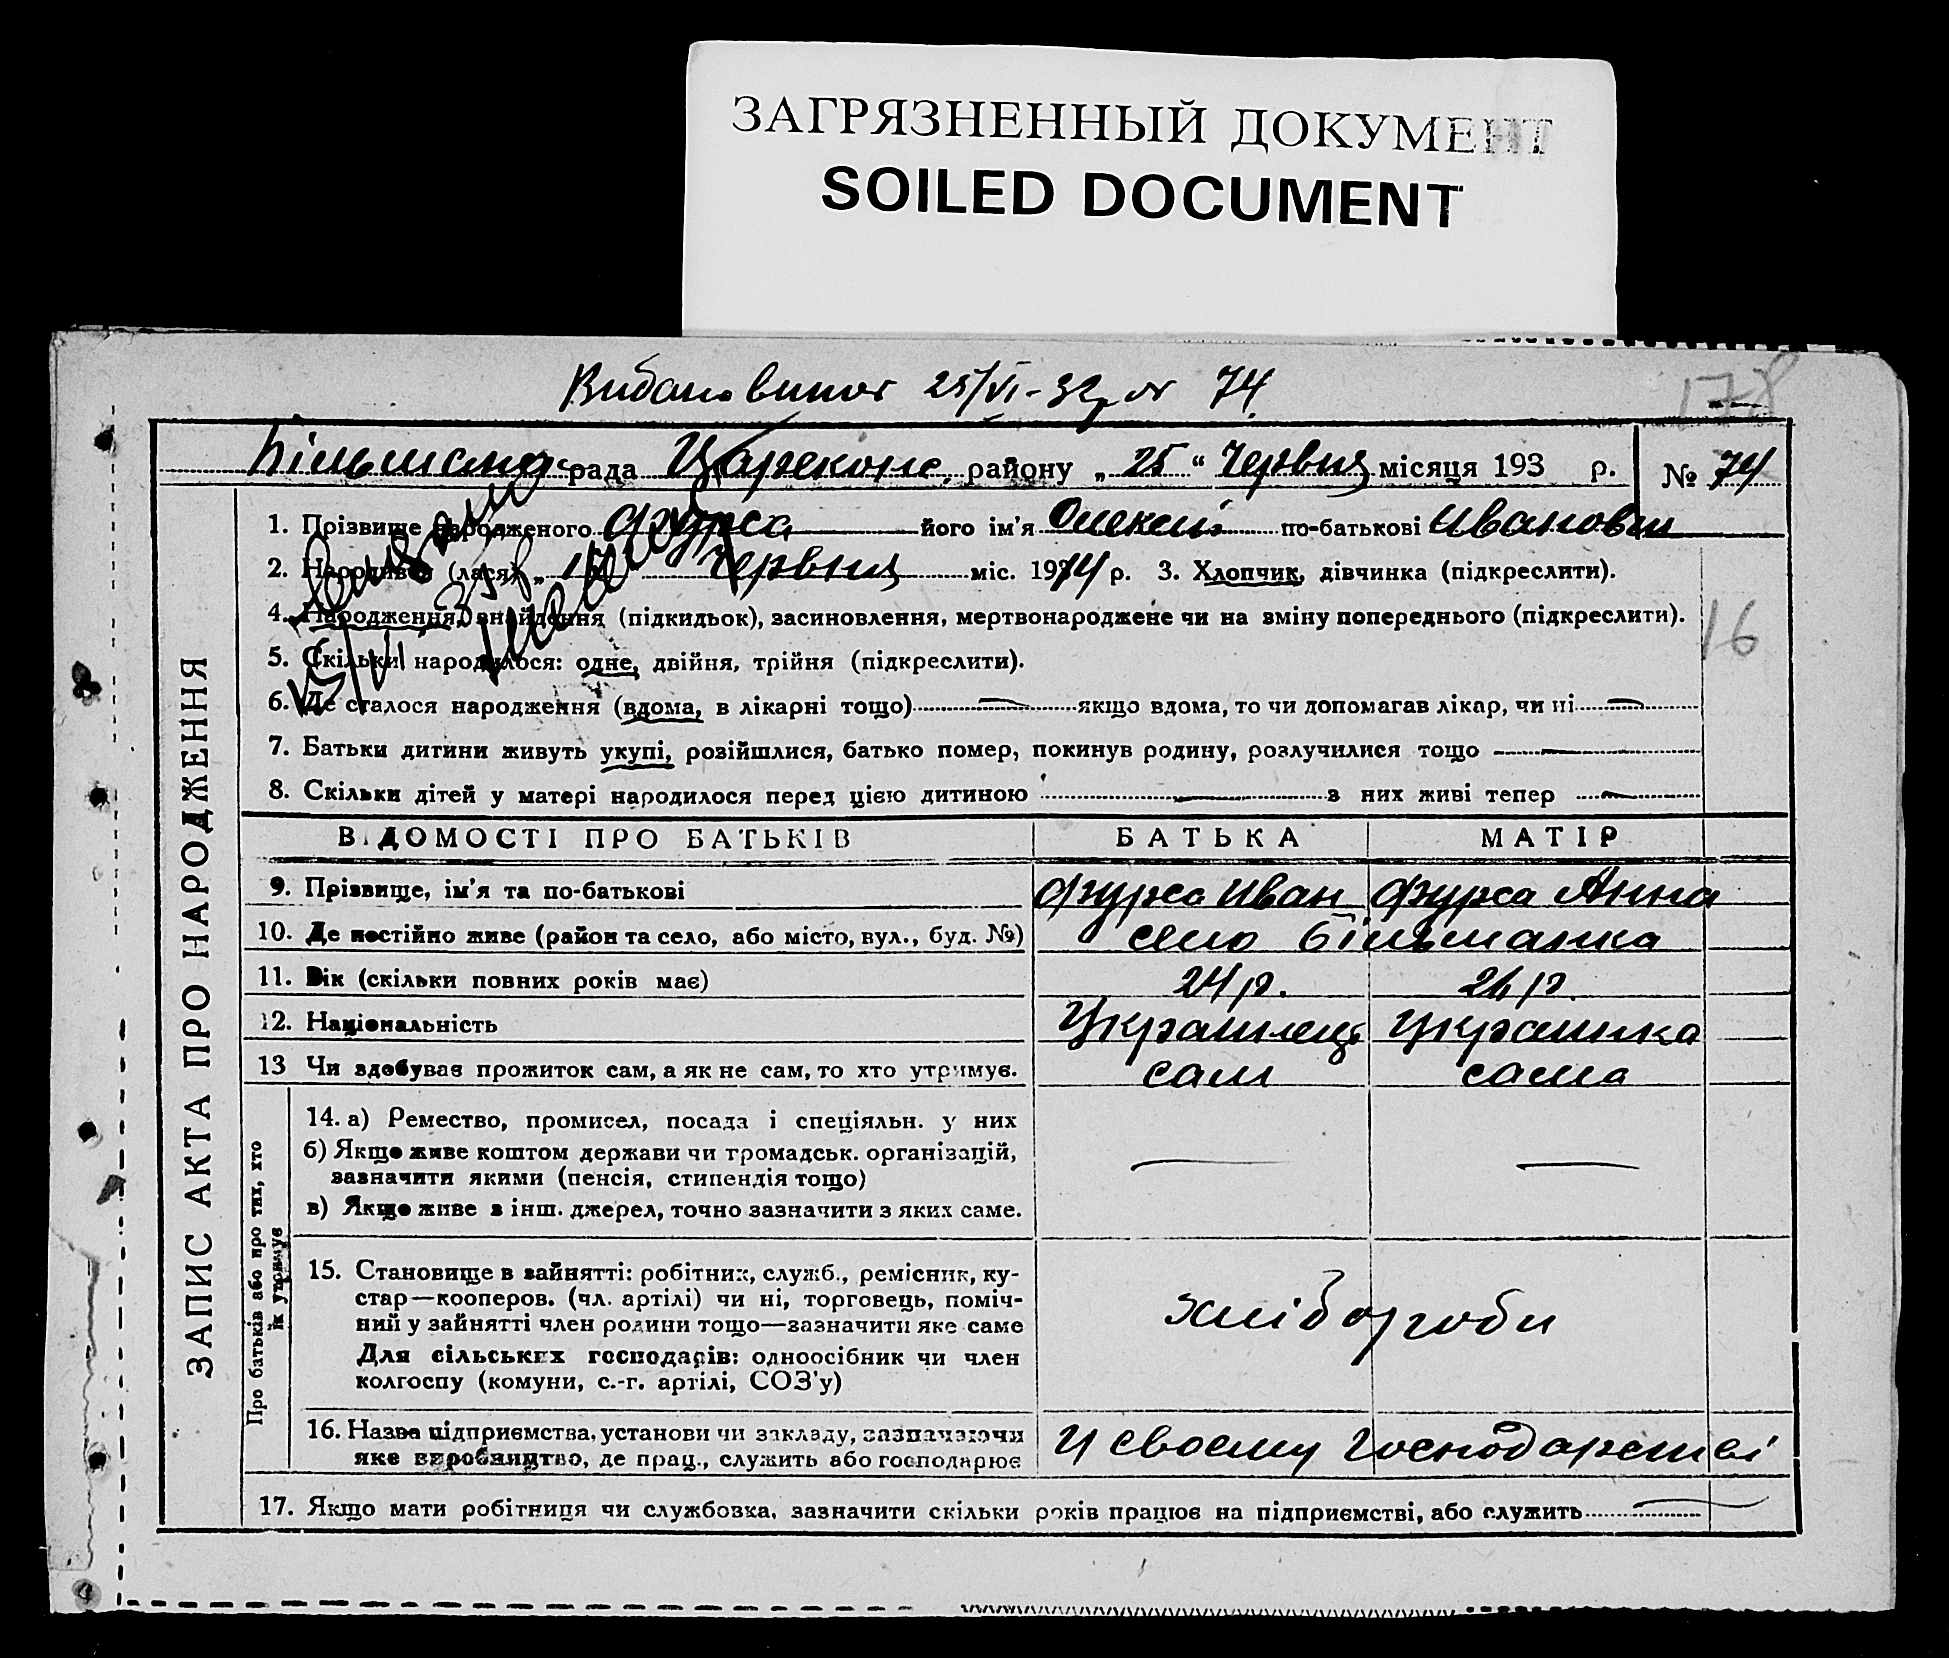 ЗАГРЯЗНЕННЫЙ ДОКУМЕНТ
SOILED DOCUMENT
178
25/VI-32 74
рада району „ 25 “ Червня місяця 193 р. № 74
1. Прізвище народженого Фурса його ім'я Олексій по-батькові Иванович
2. Народився (лася) „ Червня міс. 19 р. 3. Хлопчик, дівчинка (підкреслити).
4. Народження, знайдення (підкидьок), засиновлення, мертвонароджене чи на зміну попереднього (підкреслити).
16
5. Скільки народилося: одне, двійня, трійня (підкреслити).
6. Де сталося народження (вдома, в лікарні тощо) — якщо вдома, то чи допомагав лікар, чи ні —
7. Батьки дитини живуть укупі, розійшлися, батько помер, покинув родину, розлучилися тощо —
8. Скільки дітей у матері народилося перед цією дитиною — з них живі тепер —
ЗАПИС АКТА ПРО НАРОДЖЕННЯ
ВІДОМОСТІ ПРО БАТЬКІВ БАТЬКА МАТІР
9. Прізвище, ім'я та по-батькові Фурса Иван Фурса Анна
10. Де постійно живе (район та село, або місто, вул., буд. №) село Більманка
11. Вік (скільки повних років має) 24 р. 26 р.
12. Національність Українець Українка
13 Чи здобуває прожиток сам, а як не сам, то хто утримує. сам сама
Про батьків або про тих, хто їх утримує
14. а) Ремество, промисел, посада і спеціяльн. у них
б) Якщо живе коштом держави чи громадськ. організацій, — —
зазначити якими (пенсія, стипендія тощо)
в) Якщо живе з інш. джерел, точно зазначити з яких саме.
15. Становище в зайнятті: робітник, служб., ремісник, ку-
стар—кооперов. (чл. артілі) чи ні, торговець, поміч-
ний у зайнятті член родини тощо—зазначити яке саме хлібороби
Для сільських господарів: одноосібник чи член
колгоспу (комуни, с.-г. артілі, СОЗ'у)
16. Назва підприємства, установи чи закладу, зазначаючи у своєму господарстві
яке виробництво, де прац., служить або господарює
17. Якщо мати робітниця чи службовка, зазначити скільки років працює на підприємстві, або служить —